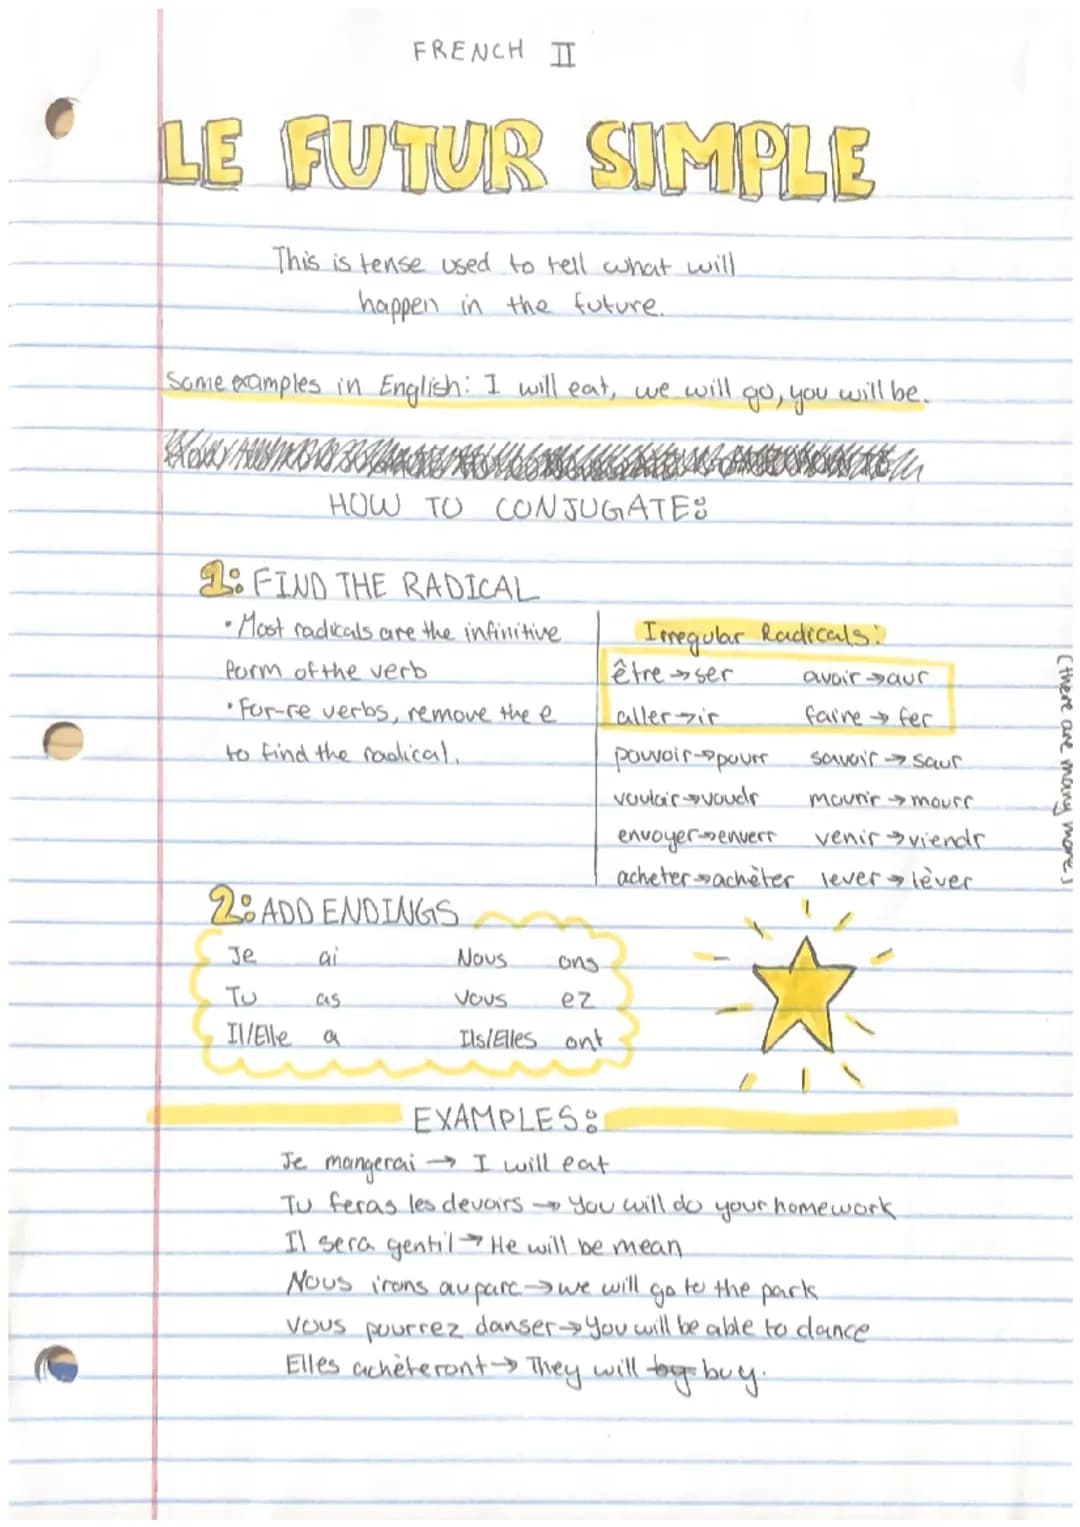 FRENCH II
LE FUTUR SIMPLE
This is tense used to tell what will
happen in the future.
Some examples in English: I will eat, we will go, you will be.
HOW TO CONJUGATE:
1: FIND THE RADICAL
• Most radicals are the infinitive
form of the verb
• For -re verbs, remove the e
to find the radical.
Irregular Radicals:
être → ser avoir → aur
aller → ir faire → fer
pouvoir → pourr savoir → saur
vouloir → voudr mourir → mourr
envoyer → enverr venir → viendr
acheter → achèter lever → lèver
(there are many more)
2: ADD ENDINGS
Je ai Nous ons
Tu as Vous ez
Il/Elle a Ils/Elles ont
EXAMPLES:
Je mangerai → I will eat
Tu feras les devoirs → You will do your homework
Il sera gentil → He will be mean
Nous irons au parc → we will go to the park
Vous pourrez danser → You will be able to dance
Elles achèteront → They will buy.